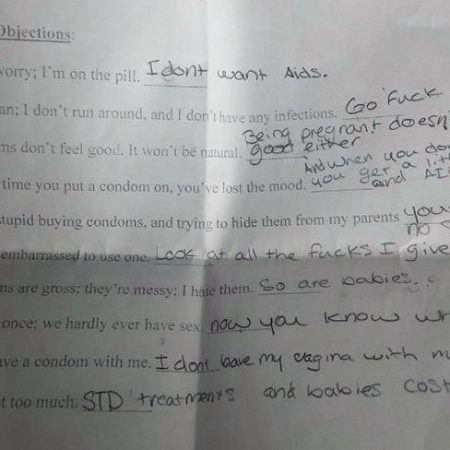 Objections:
worry; I'm on the pill. I dont want Aids.
an; I don't run around, and I don't have any infections. Go Fuck
Being pregnant doesn
ms don't feel good. It won't be natural. good either
And when you don
time you put a condom on, you've lost the mood. you get a litt
and AI
stupid buying condoms, and trying to hide them from my parents you
no
embarrassed to use one. Look at all the fucks I give
ns are gross; they're messy; I hate them. So are babies.
once; we hardly ever have sex. now you know w
ave a condom with me. I dont have my vagina with m
t too much. STD treatments and babies cost